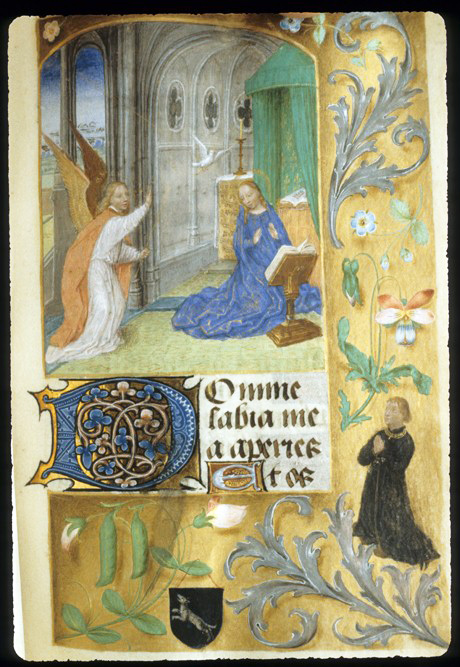 Domine
labia me
a aperies
Et os